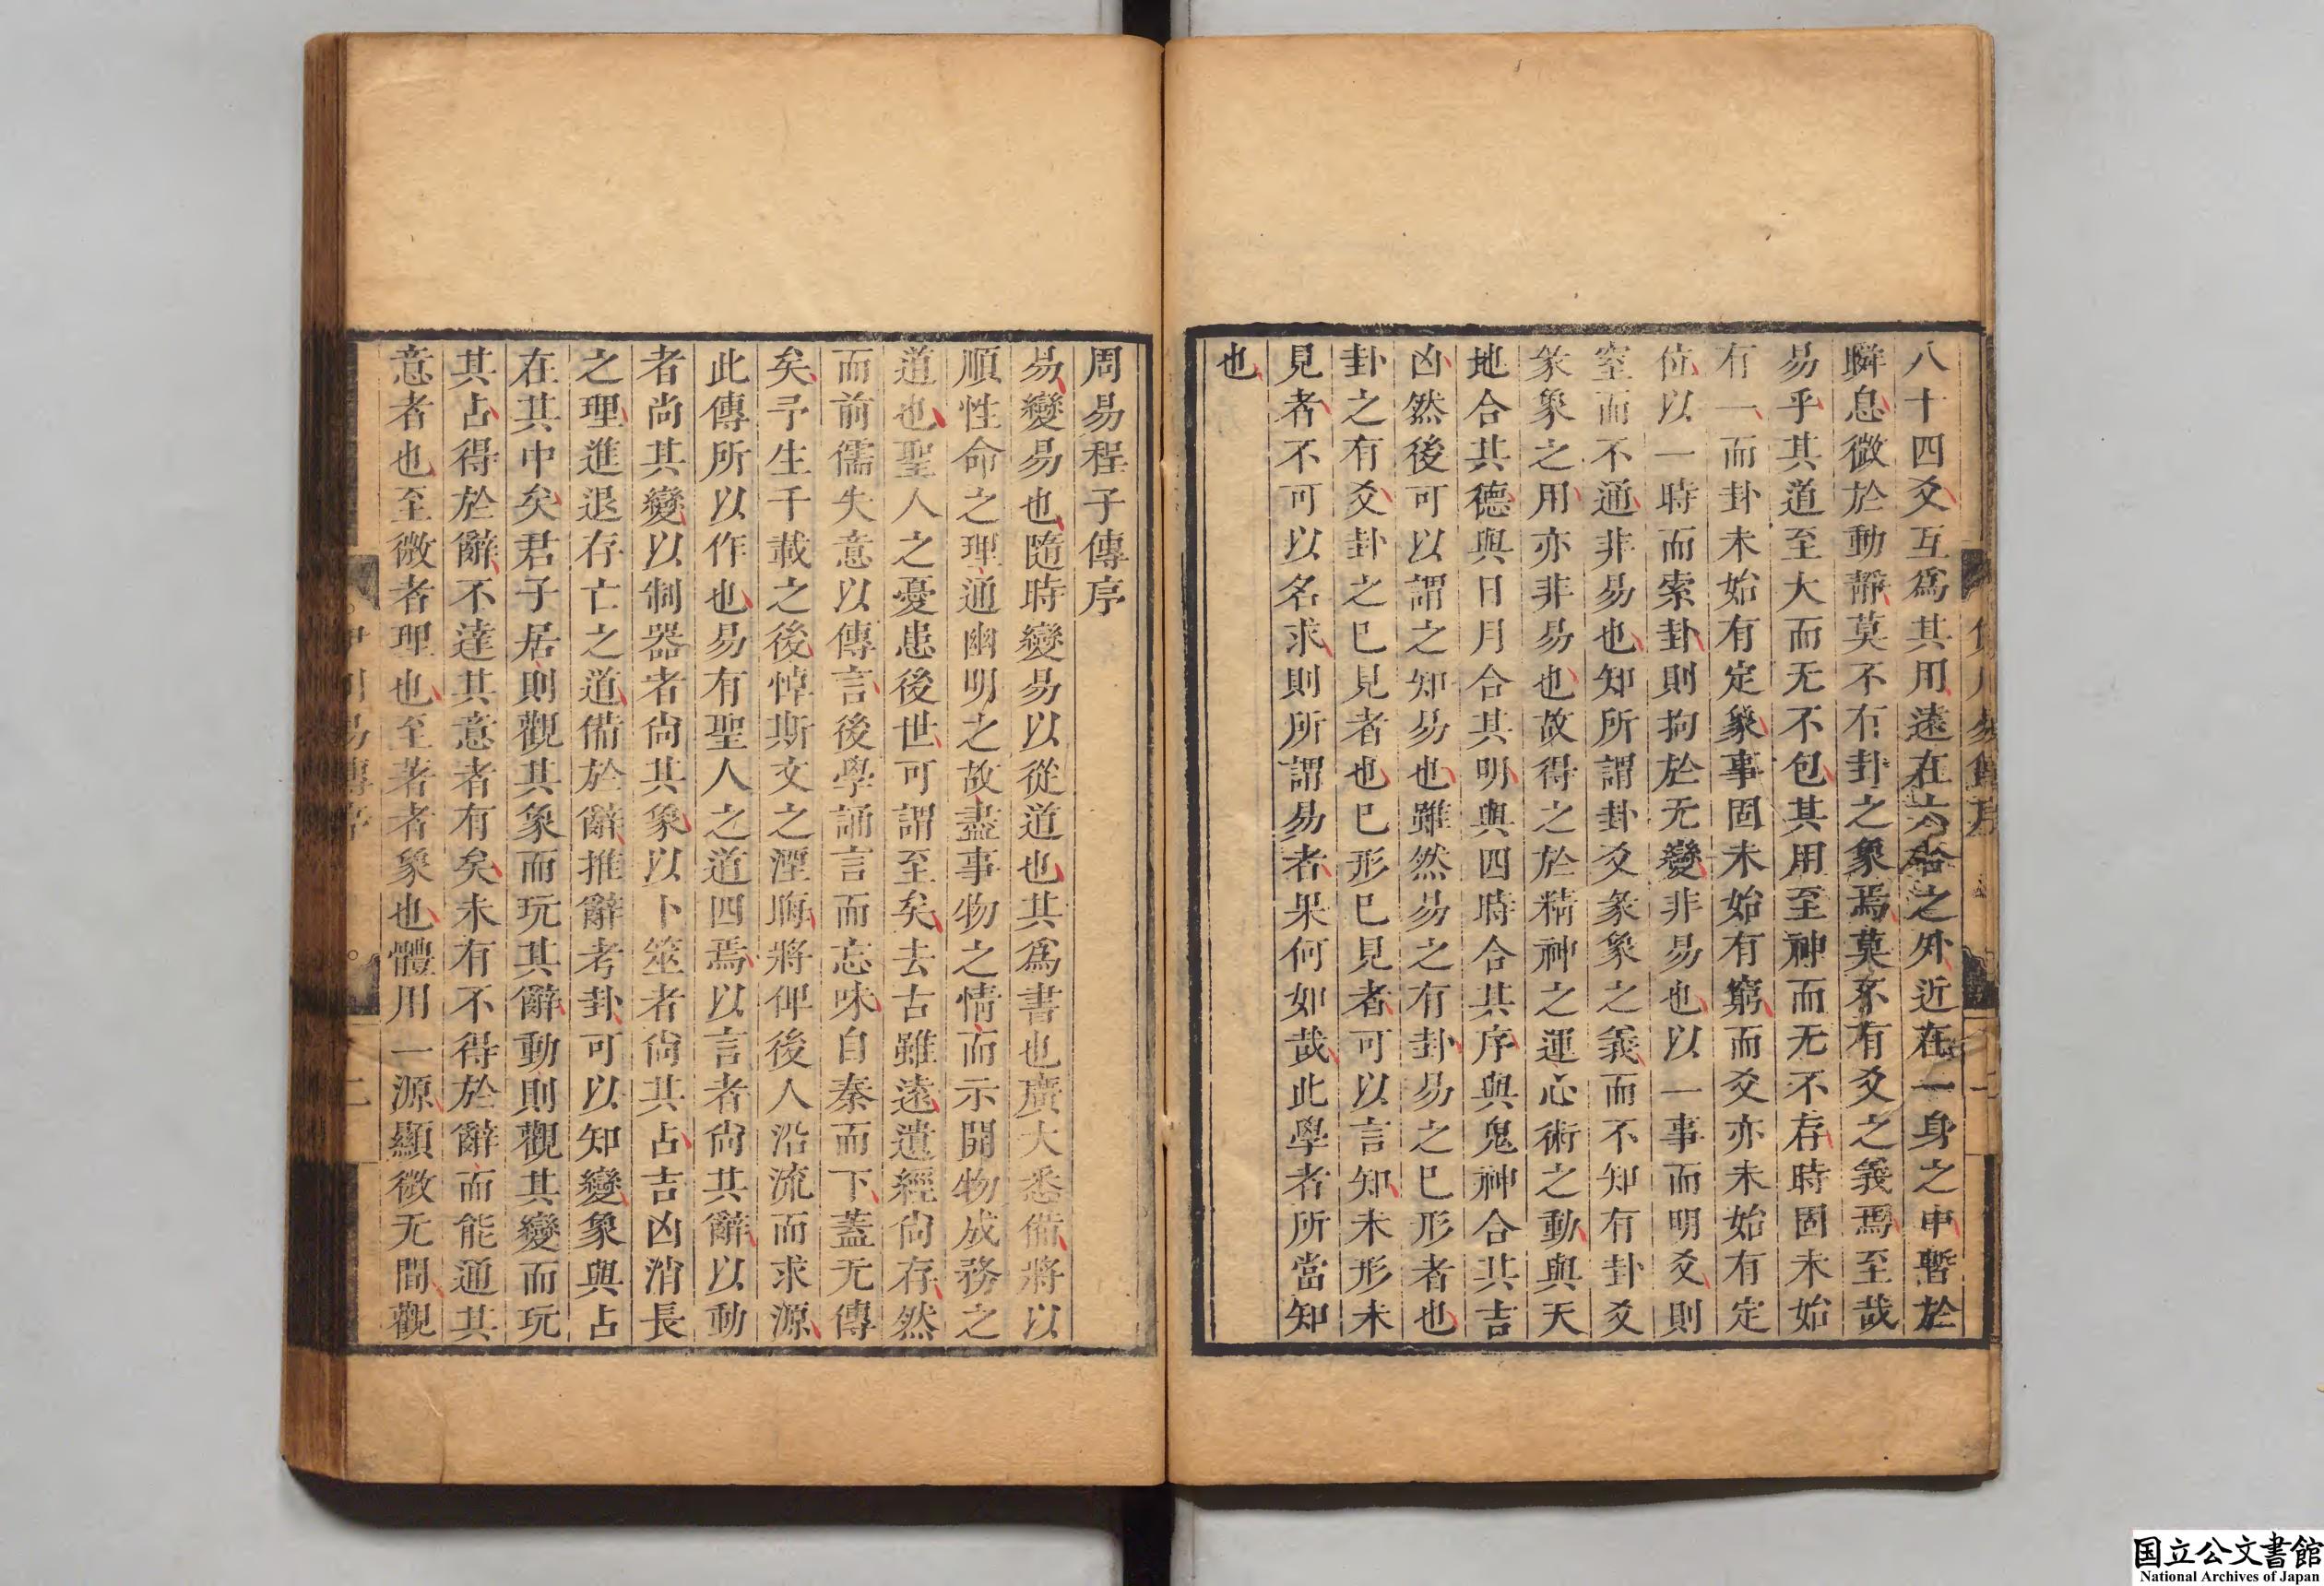 八十四爻互爲其用遠在六合之外近在一身之中暫於
瞬息微於動靜莫不有卦之象焉莫不有爻之義焉至哉
易乎其道至大而无不包其用至神而无不存時固未始
有一而卦未始有定象事固未始有窮而爻亦未始有定
位以一時而索卦則拘於无變非易也以一事而明爻則
窒而不通非易也知所謂卦爻彖象之義而不知有卦爻
彖象之用亦非易也故得之於精神之運心術之動與天
地合其德與日月合其明與四時合其序與鬼神合其吉
凶然後可以謂之知易也雖然易之有卦易之已形者也
卦之有爻卦之已見者也已形已見者可以言知未形未
見者不可以名求則所謂易者果何如哉此學者所當知
也
周易程子傳序
易變易也隨時變易以從道也其爲書也廣大悉備將以
順性命之理通幽明之故盡事物之情而示開物成務之
道也聖人之憂患後世可謂至矣去古雖遠遺經尙存然
而前儒失意以傳言後學誦言而忘味自秦而下蓋无傳
矣予生千載之後悼斯文之湮晦將俾後人沿流而求源
此傳所以作也易有聖人之道四焉以言者尙其辭以動
者尙其變以制器者尙其象以卜筮者尙其占吉凶消長
之理進退存亡之道備於辭推辭考卦可以知變象與占
在其中矣君子居則觀其象而玩其辭動則觀其變而玩
其占得於辭不達其意者有矣未有不得於辭而能通其
意者也至微者理也至著者象也體用一源顯微无間觀
二
国立公文書館
National Archives of Japan